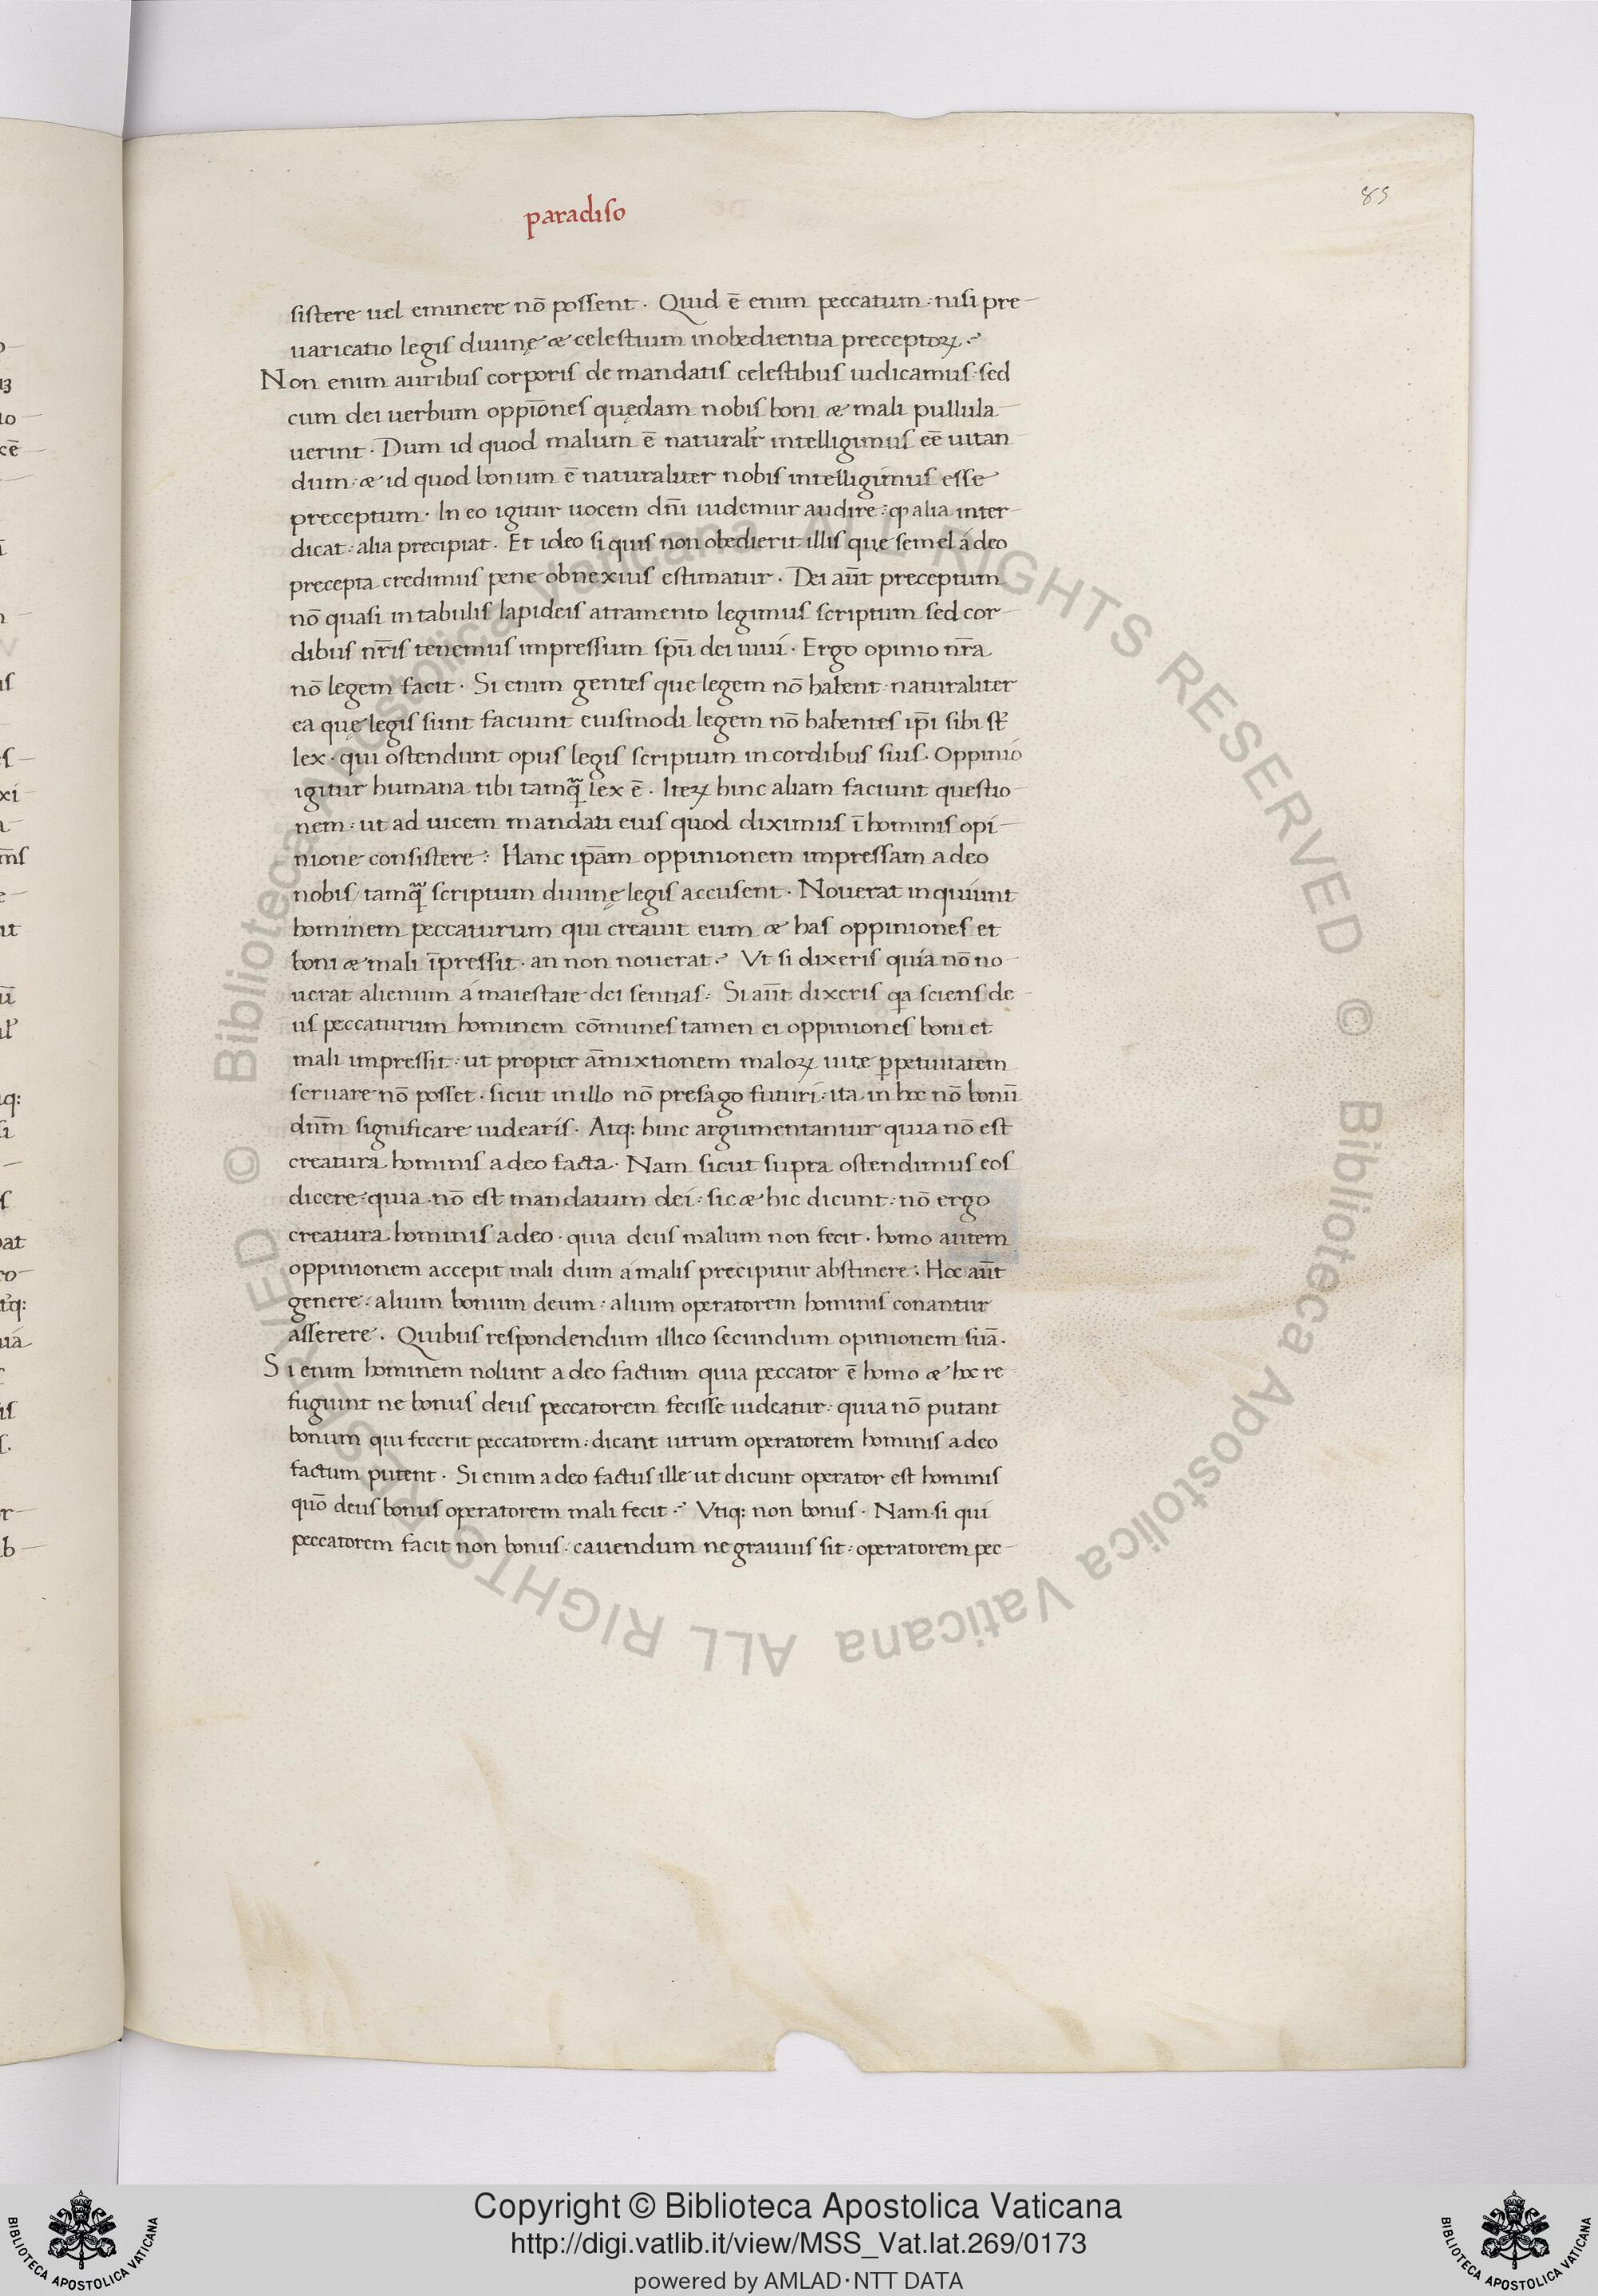 paradiso
85
sistere uel eminere nō possent. Quid ē enim peccatum: nisi pre-
uaricatio legis diuinę & celestium inobedientia preceptoꝝ.
Non enim auribus corporis de mandatis celestibus iudicamus: sed
cum dei uerbum oppiōnes quędam nobis boni & mali pullula-
uerint. Dum id quod malum ē naturalr̄ intelligimus eē uitan-
dum: & id quod bonum ē naturaliter nobis intelligimus esse
preceptum. In eo igitur uocem dn̄i uidemur audire: ꝙ alia inter-
dicat: alia precipiat. Et ideo si quis non obedierit illis que semel á deo
precepta credimus pene obnexius estimatur. Dei aūt preceptum
nō quasi in tabulis lapideis atramento legimus scriptum sed cor-
dibus nr̄is tenemus impressum spū dei uiui. Ergo opinio nr̄a
nō legem facit. Si enim gentes que legem nō habent naturaliter
ea quę legis sunt faciunt eiusmodi legem nō habentes ip̄i sibi st̄
lex. qui ostendunt opus legis scriptum in cordibus suis. Oppinio
igitur humana tibi tamq̄ lex ē. Iteꝝ hinc aliam faciunt questio-
nem: ut ad uicem mandati eius quod diximus ī hominis opi-
nione consistere: Hanc ip̄am oppinionem impressam a deo
nobis / tamq̄ scriptum diuinę legis accusent. Nouerat inquiunt
hominem peccaturum qui creauit eum & has oppiniones et
boni & mali īpressit. an non nouerat. Vt si dixeris quia nō no-
uerat alienum á maiestate dei sentias: Si aūt dixeris qa sciens de-
us peccaturum hominem cōmunes tamen ei oppiniones boni et
mali impressit: ut propter āmixtionem maloꝝ uitę ꝑpetuitatem
seruare nō posset. sicut in illo nō presago futuri: ita in hoc nō bonū
dnm̄ significare uidearis. Atq: hinc argumentantur quia nō est
creatura hominis a deo facta. Nam sicut supra ostendimus eos
dicere: quia nō est mandatum dei: sic & hic dicunt: nō ergo
creatura hominis a deo. quia deus malum non fecit. homo autem
oppinionem accepit mali dum a malis precipitur abstinere: Hoc aūt
genere: alium bonum deum: alium operatorem hominis conantur
asserere. Quibus respondendum illico secundum opinionem suā.
Si enim hominem nolunt a deo factum quia peccator ē homo & hoc re-
fugiunt ne bonus deus peccatorem fecisse uideatur: quia nō putant
bonum qui fecerit peccatorem: dicant utrum operatorem hominis a deo
factum putent. Si enim a deo factus ille ut dicunt operator est hominis
quō deus bonus operatorem mali fecit. Vtiq: non bonus. Nam si qui
peccatorem facit non bonus. cauendum ne grauius sit: operatorem pec-
© Biblioteca Apostolica Vaticana ALL RIGHTS RESERVED © Biblioteca Apostolica Vaticana ALL RIGHTS RESERVED
Copyright © Biblioteca Apostolica Vaticana
http://digi.vatlib.it/view/MSS_Vat.lat.269/0173
powered by AMLAD·NTT DATA
BIBLIOTECA APOSTOLICA VATICANA
BIBLIOTECA APOSTOLICA VATICANA